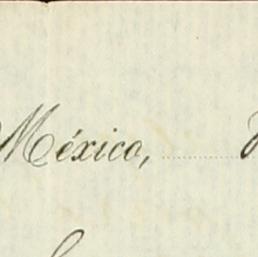 México,